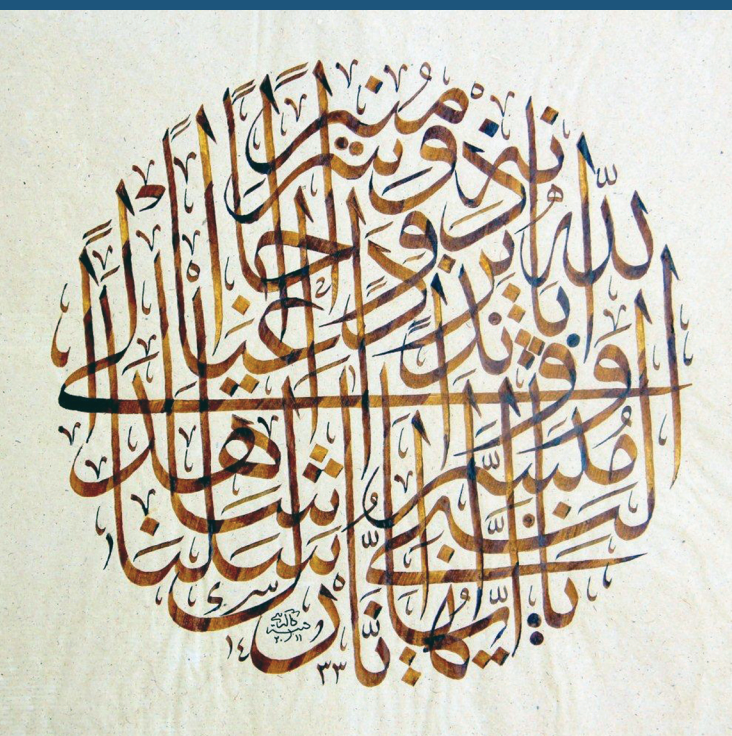 يا أيها النبي إنا أرسلناك شاهدا ومبشرا ونذيرا
وداعيا إلى الله بإذنه وسراجا منيرا
٢٠١١
١٤٣٣